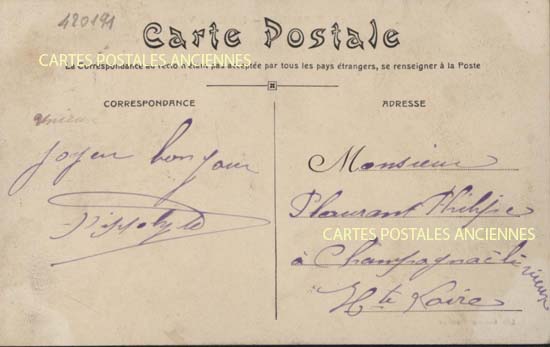 420191
Carte Postale
CARTES POSTALES ANCIENNES
La Correspondance au recto n'étant pas acceptée par tous les pays étrangers, se renseigner à la Poste
CORRESPONDANCE
joyeux bonjour
Hippolyte
ADRESSE
Monsieur
Plaurant Philippe
CARTES POSTALES ANCIENNES
à Champagnac le vieux
Hte Loire